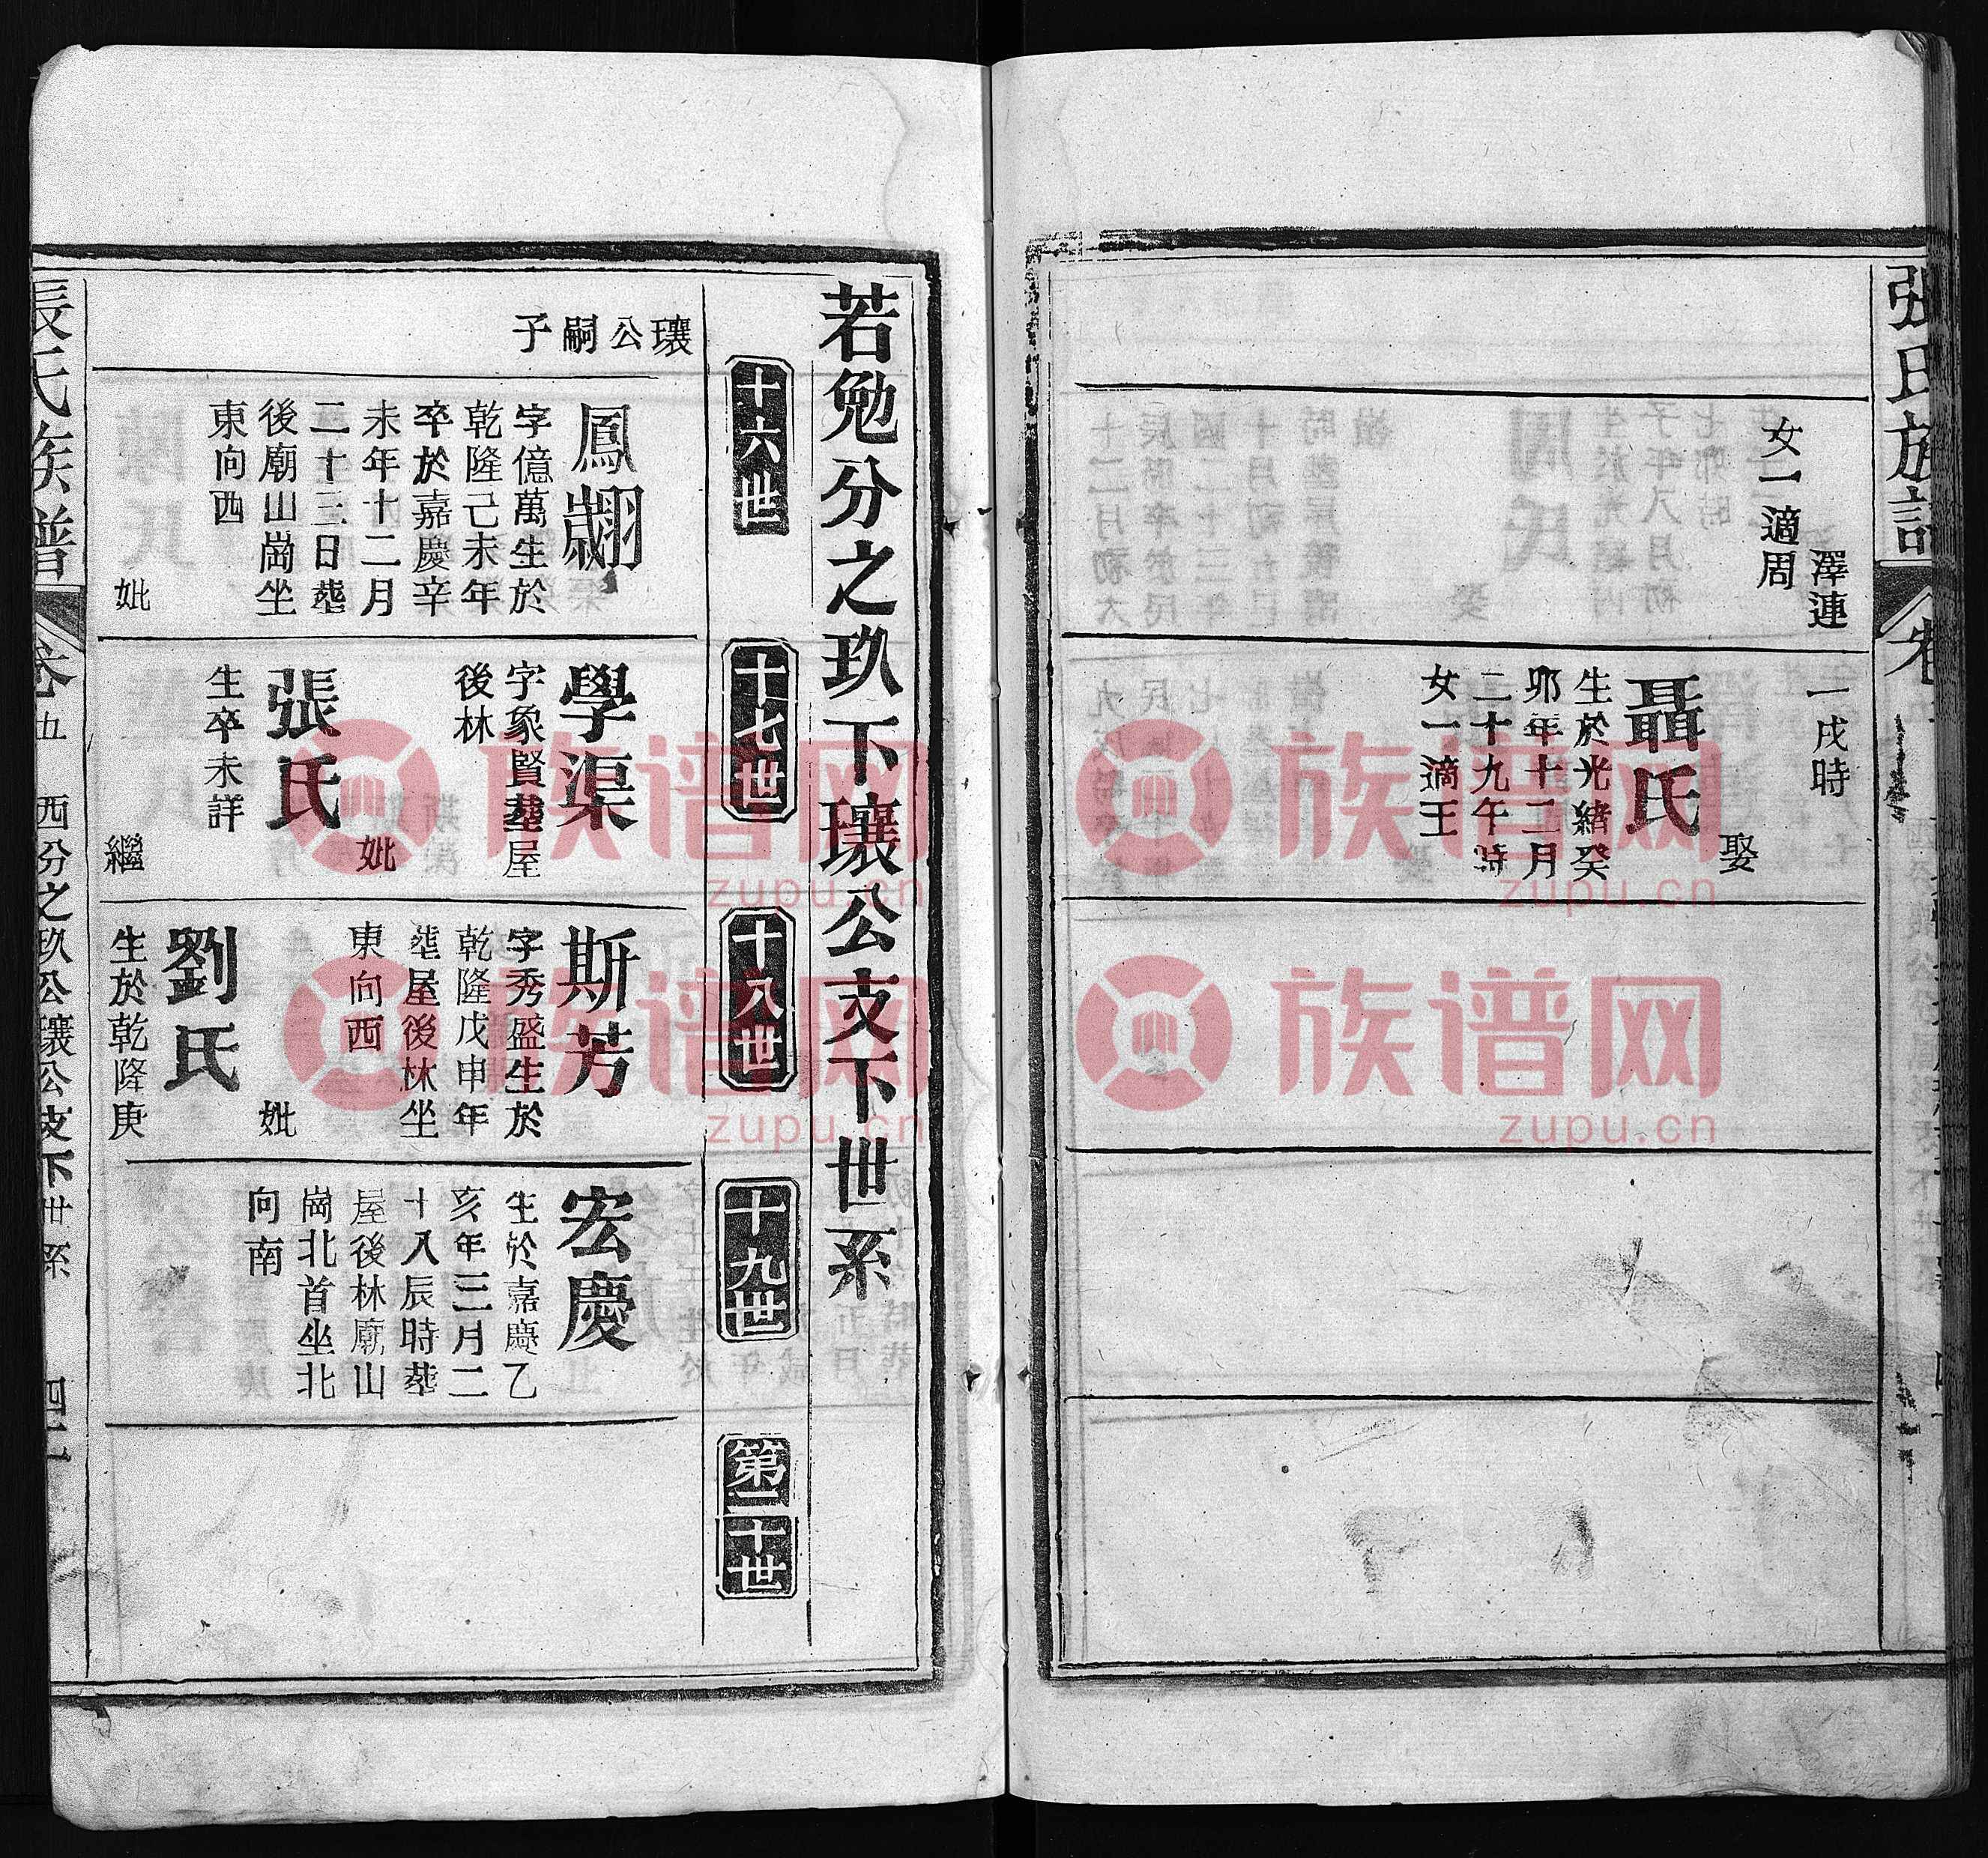 張氏族譜
澤連
女一適周
一戌時
娶
聶氏
生於光緒癸
卯年十二月
二十九午時
女一適王
若勉分之玖下瓖公支下世系
十六世
十七世
十八世
十九世
第二十世
瓖公嗣子
鳳翽
字億萬生於
乾隆己未年
卒於嘉慶辛
未年十二月
二十三日塟
後廟山崗坐
東向西
妣
學渠
字象賢塟屋
後林
妣
張氏
生卒未詳
繼
斯芳
字秀盛生於
乾隆戊申年
塟屋後林坐
東向西
妣
劉氏
生於乾隆庚
宏慶
生於嘉慶乙
亥年三月二
十八辰時塟
屋後林廟山
崗北首坐北
向南
張氏族譜
卷五
西分之玖公瓖公支下世系
族谱网
zupu.cn
族谱网
zupu.cn
族谱网
zupu.cn
族谱网
zupu.cn